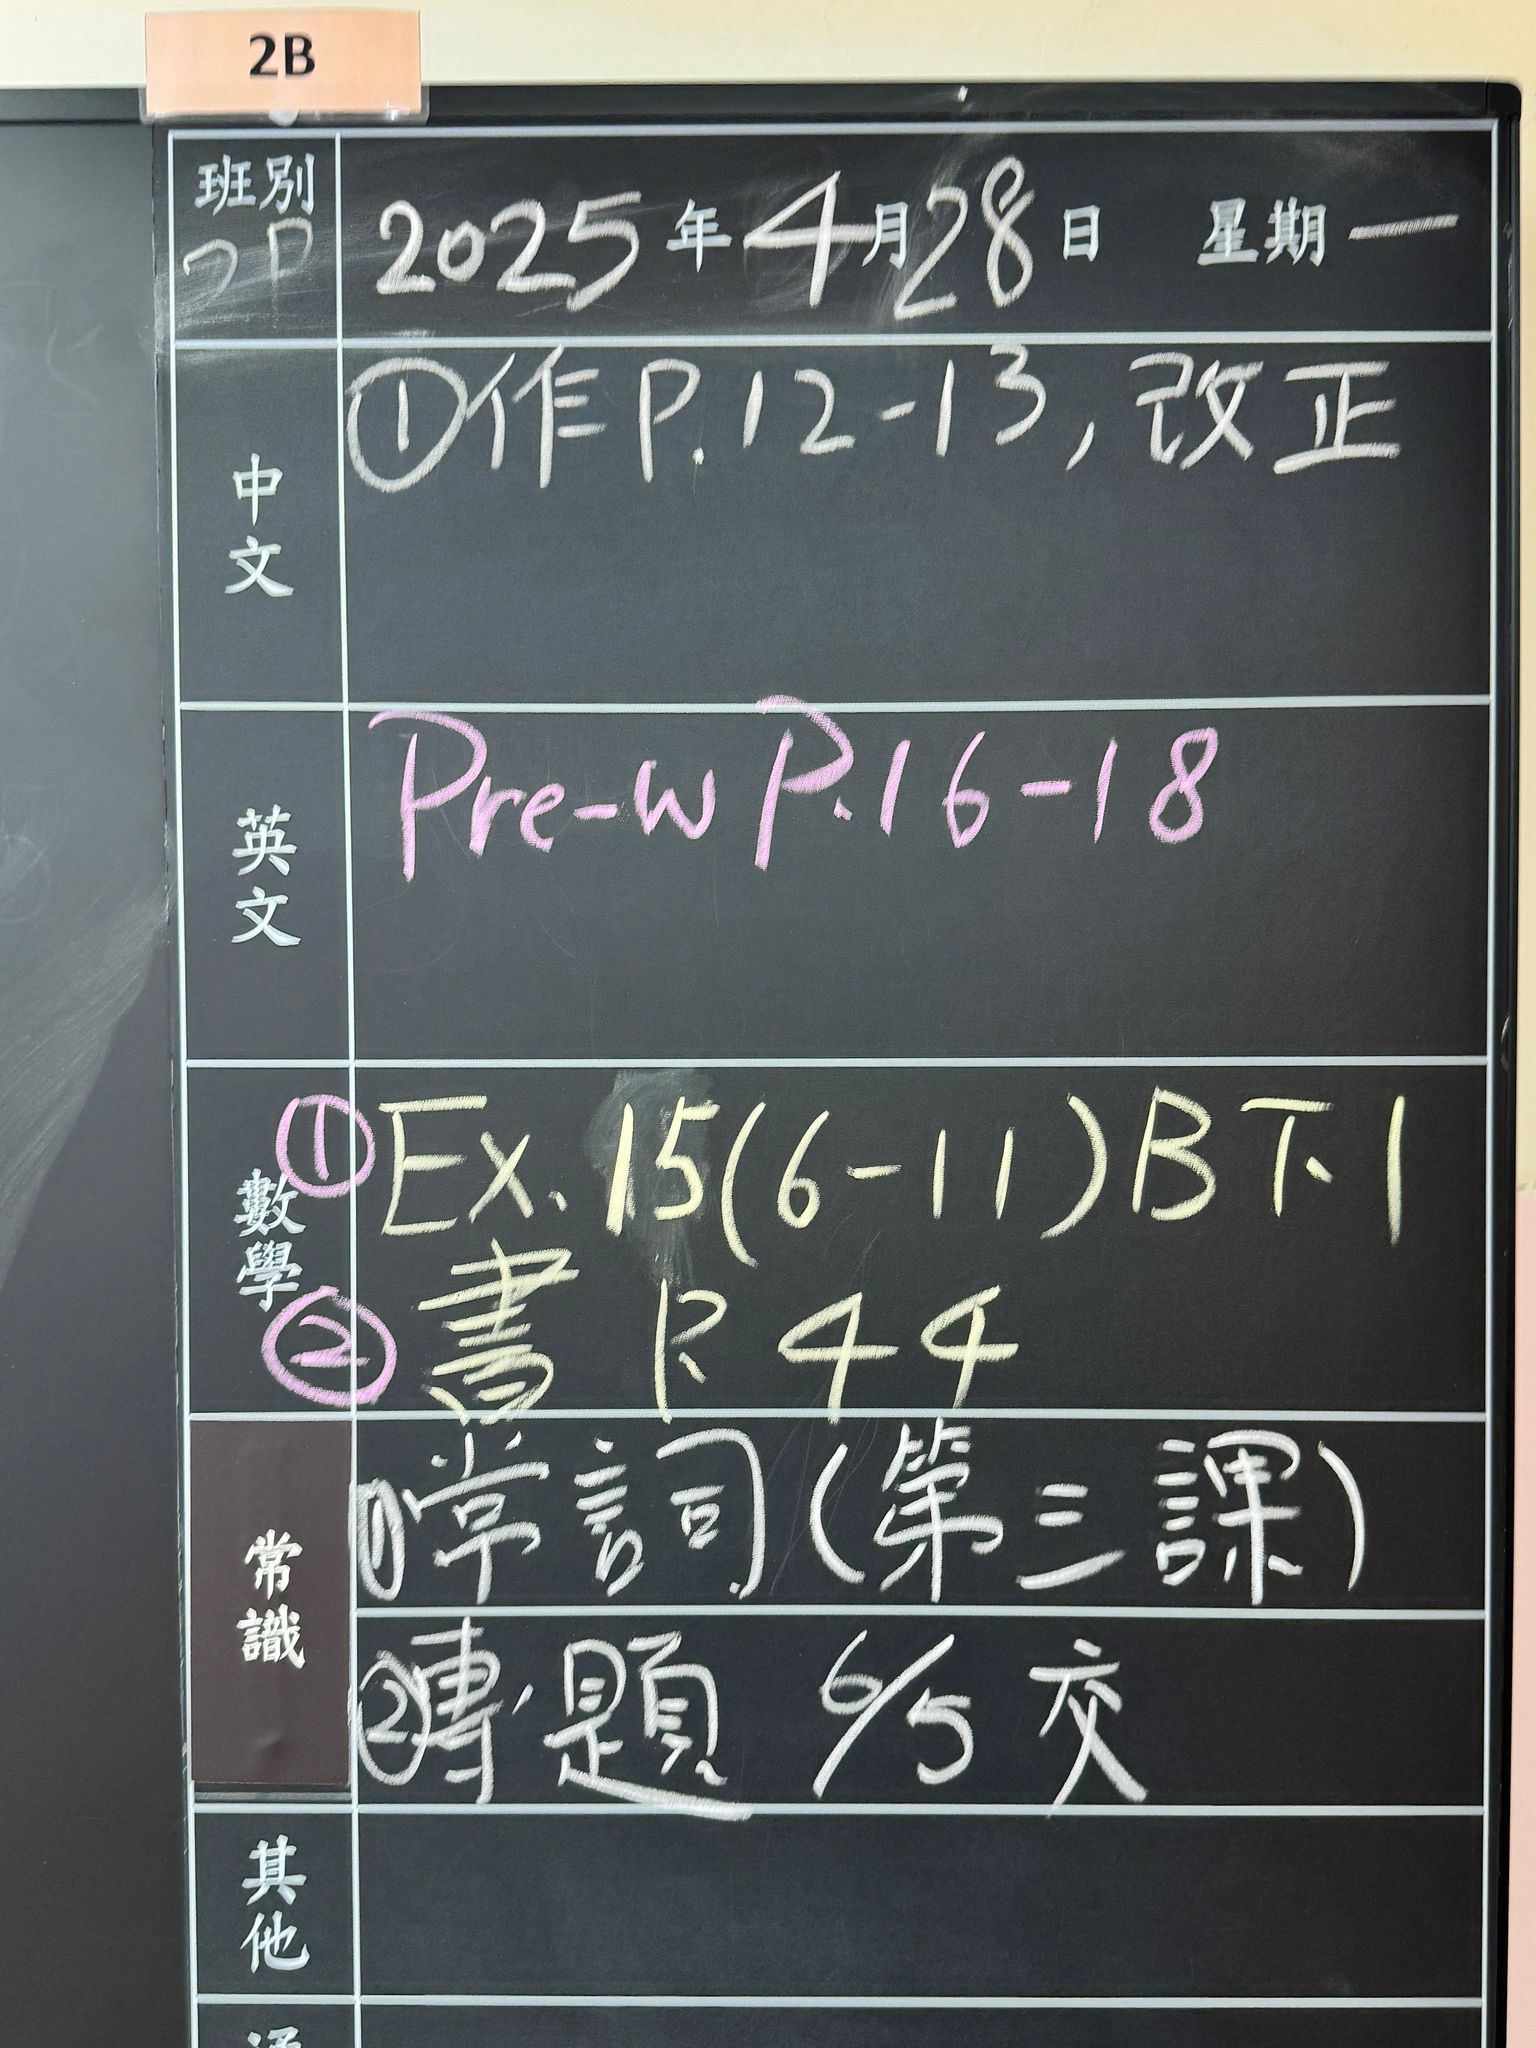 2B
班別
2025年4月28日 星期一
中文
①作P.12-13,改正
英文
Pre-w P.16-18
數學
①Ex.15(6-11)B下.1
②書 P.44
常識
①常詞(第三課)
②專題 6/5交
其他